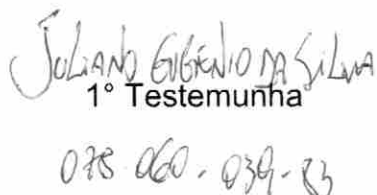 Juliano Eugênio da Silva
1° Testemunha
078.060.039-83